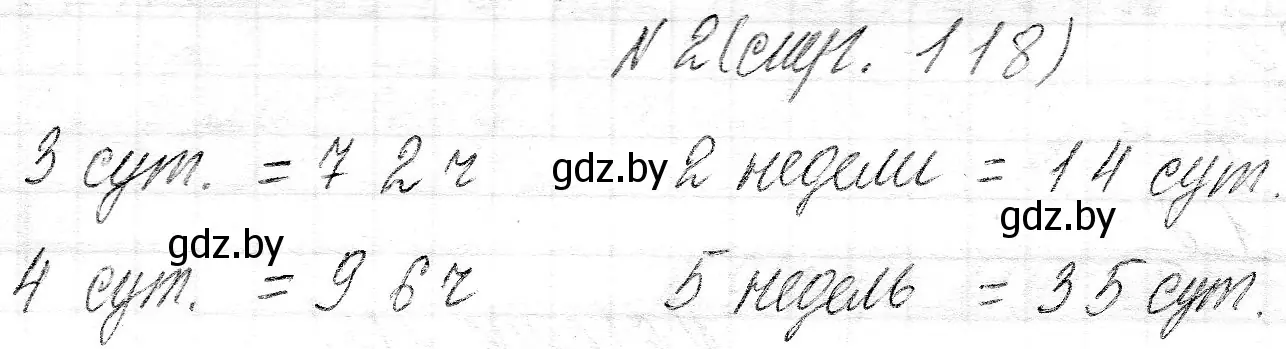 № 2 (стр. 118)
3 сут. = 72 ч gdz.by 2 недели = 14 сут.
gdz.by gdz.by
4 сут. = 96 ч 5 недель = 35 сут.